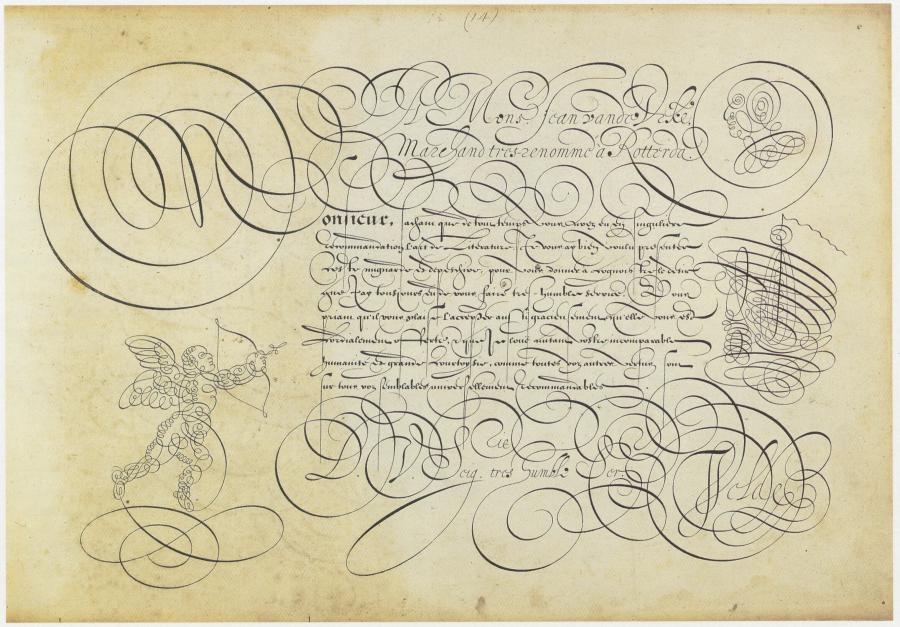 (14)
A Mons. Jean vande Velde,
Marchand tres renommé a Rotterdā.
Monsieur, sachant que de tout temps vous avez eu en singuliere
recommandation l'art de Literature, Je vous ay bien voulu presenter
ceste mignarde pour vous donner a cognoistre le desir
que J'ay tousjours eu de vous faire tres-humble service. Vous
priant qu'il vous plaise l'accepter aussi gracieusement qu'elle vous est
cordialement offerte, et que je loue autant vostre incomparable
humanité et grande courtoysie, comme toutes voz autres vertus, sont
sur tous voz semblables universellement recommandables
D. V. Seig. tres humble Ser.
Velde